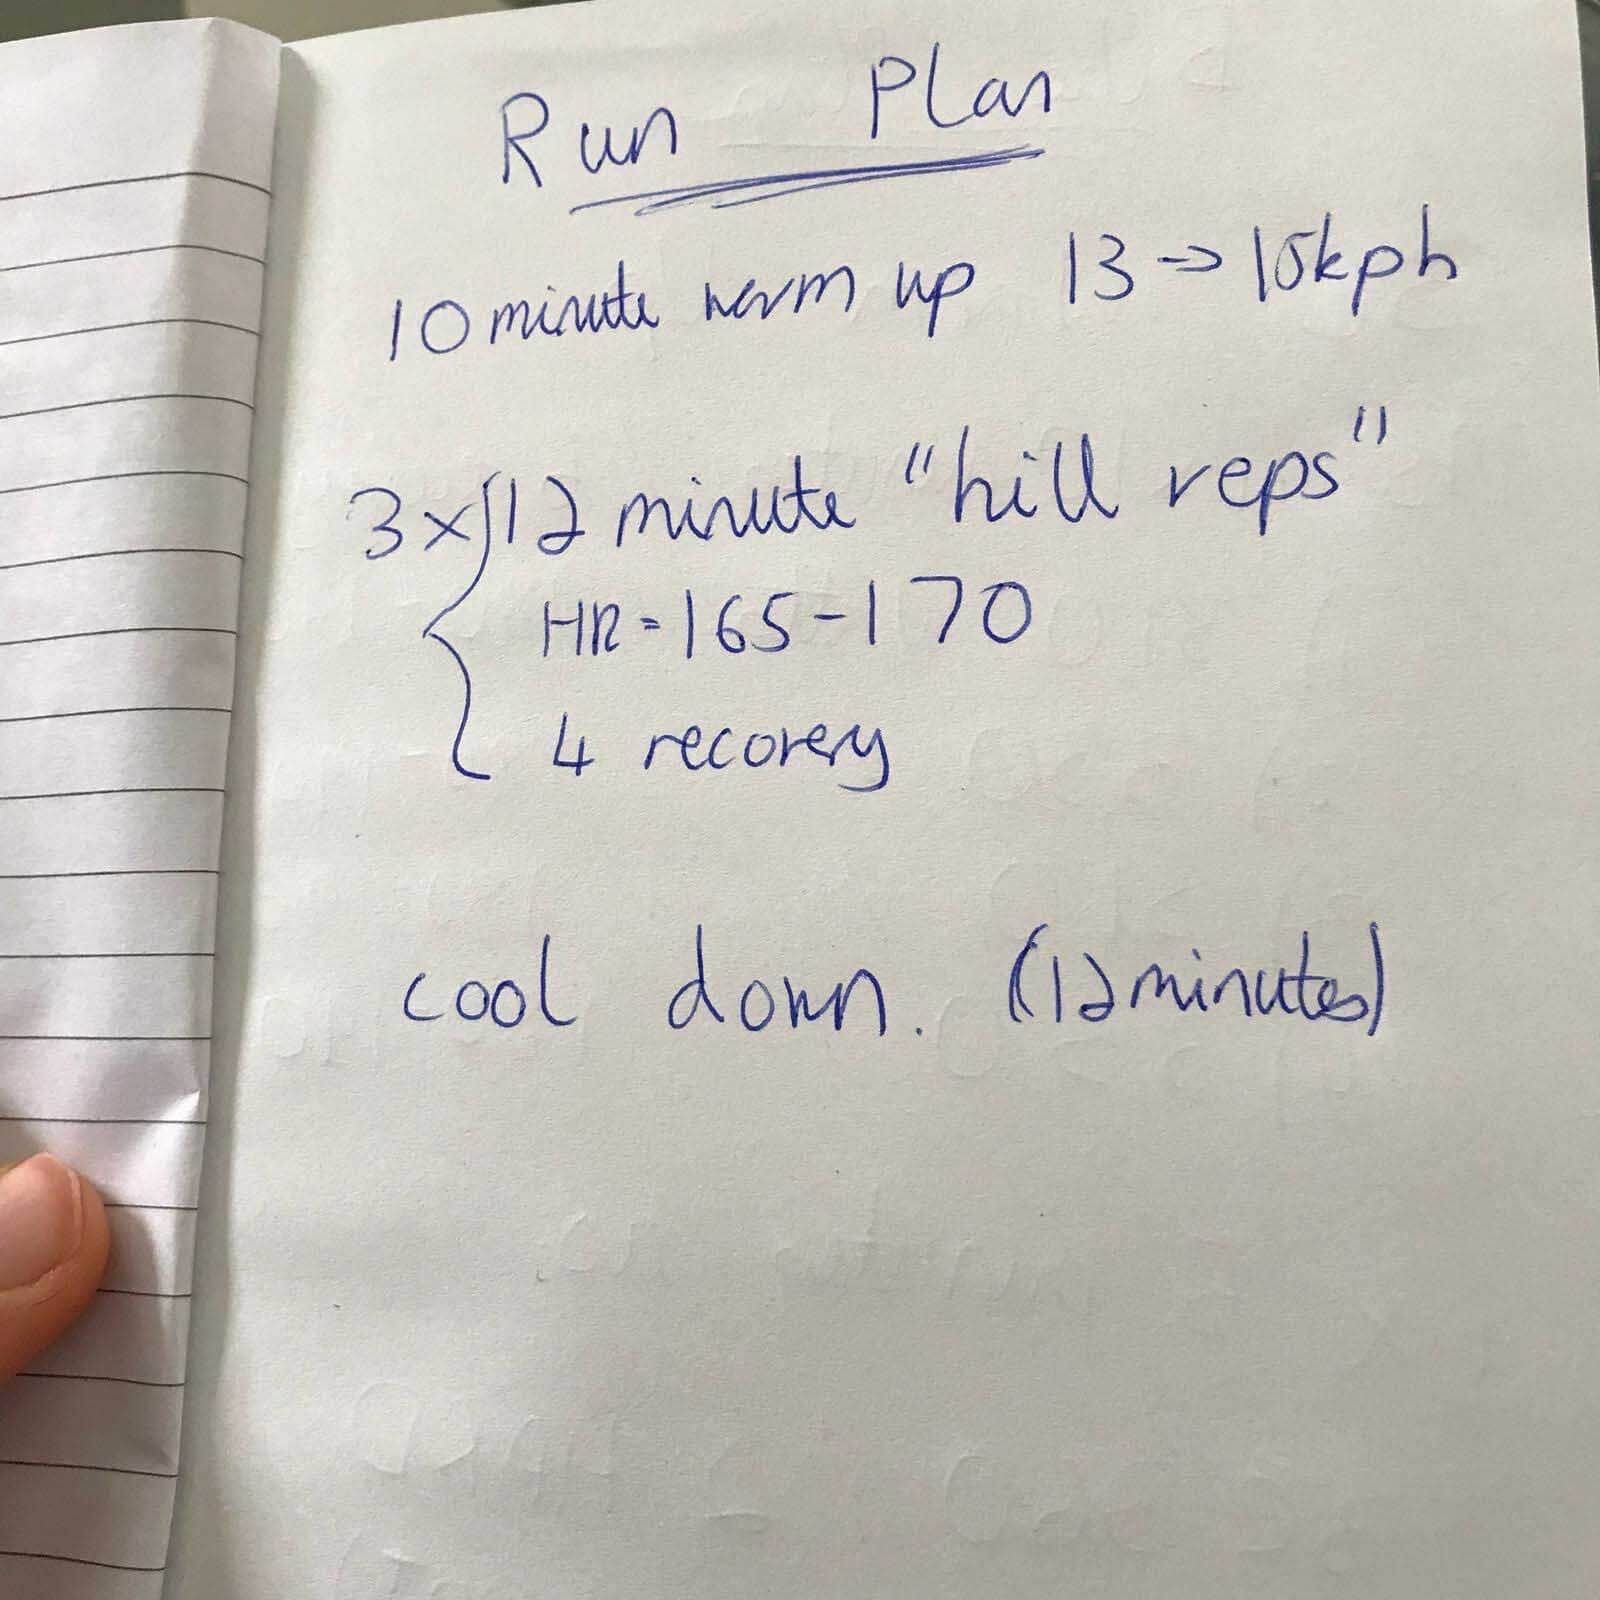 Run Plan
10 minute warm up 13 → 15kph
3 x { 12 minute "hill reps"
HR = 165 - 170
4 recovery
cool down. (12 minutes)